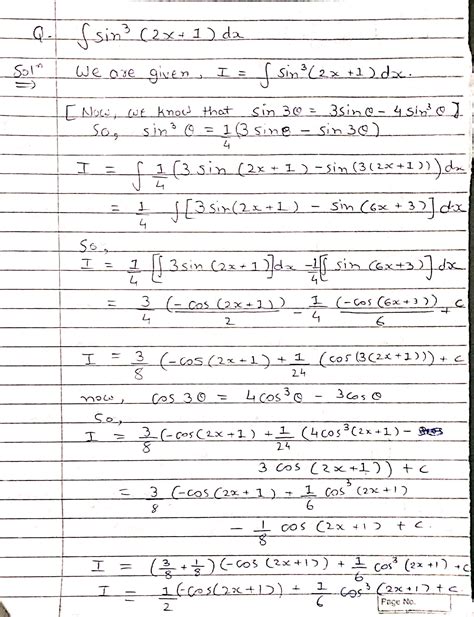 Q. ∫ sin³ (2x+1) dx
Solⁿ We are given, I = ∫ sin³(2x+1) dx.
[Now, we know that sin 3θ = 3sinθ - 4sin³θ]
So, sin³θ = 1/4 (3 sinθ - sin 3θ)
I = ∫ 1/4 [3 sin (2x+1) - sin(3(2x+1))] dx
= 1/4 ∫ [3 sin(2x+1) - sin (6x+3)] dx
So,
I = 1/4 [∫ 3 sin (2x+1)] dx - 1/4 [∫ sin (6x+3)] dx
= 3/4 (-cos (2x+1))/2 - 1/4 (-cos (6x+3))/6 + c
I = 3/8 (-cos(2x+1) + 1/24 (cos(3(2x+1))) + c
now, cos 3θ = 4cos³θ - 3cosθ
So,
I = 3/8 (-cos(2x+1) + 1/24 (4cos³(2x+1) -
3 cos (2x+1)) + c
= 3/8 (-cos(2x+1) + 1/6 cos³ (2x+1)
- 1/8 cos (2x+1) + c.
I = (3/8 + 1/8) (-cos (2x+1)) + 1/6 cos³ (2x+1) + c
I = 1/2 (-cos(2x+1)) + 1/6 cos³ (2x+1) + c
Page No.